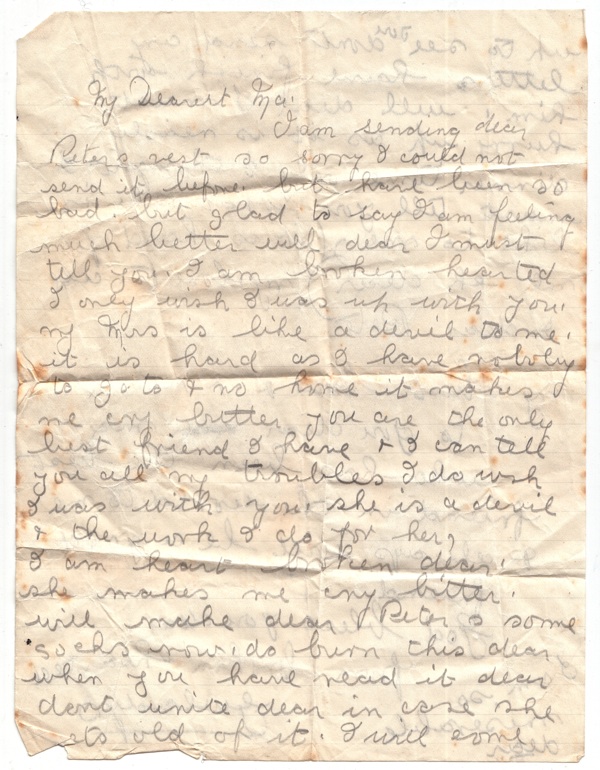 My Dearest Ma.
I am sending dear
Peters vest so sorry I could not
send it before. but have been so
bad. but glad to say I am feeling
much better well dear I must
tell you. I am broken hearted
I only wish I was up with you.
my Mrs is like a devil to me.
it is hard as I have nobody
to go to & no home it makes
me cry bitter you are the only
best friend I have & I can tell
you all my troubles I do wish
I was with you. she is a devil
& the work I do for her,
I am heart broken dear.
she makes me cry bitter.
will make dear Peters some
socks now. do burn this dear
when you have read it dear
dont write dear in case she
ets old of it. I will some